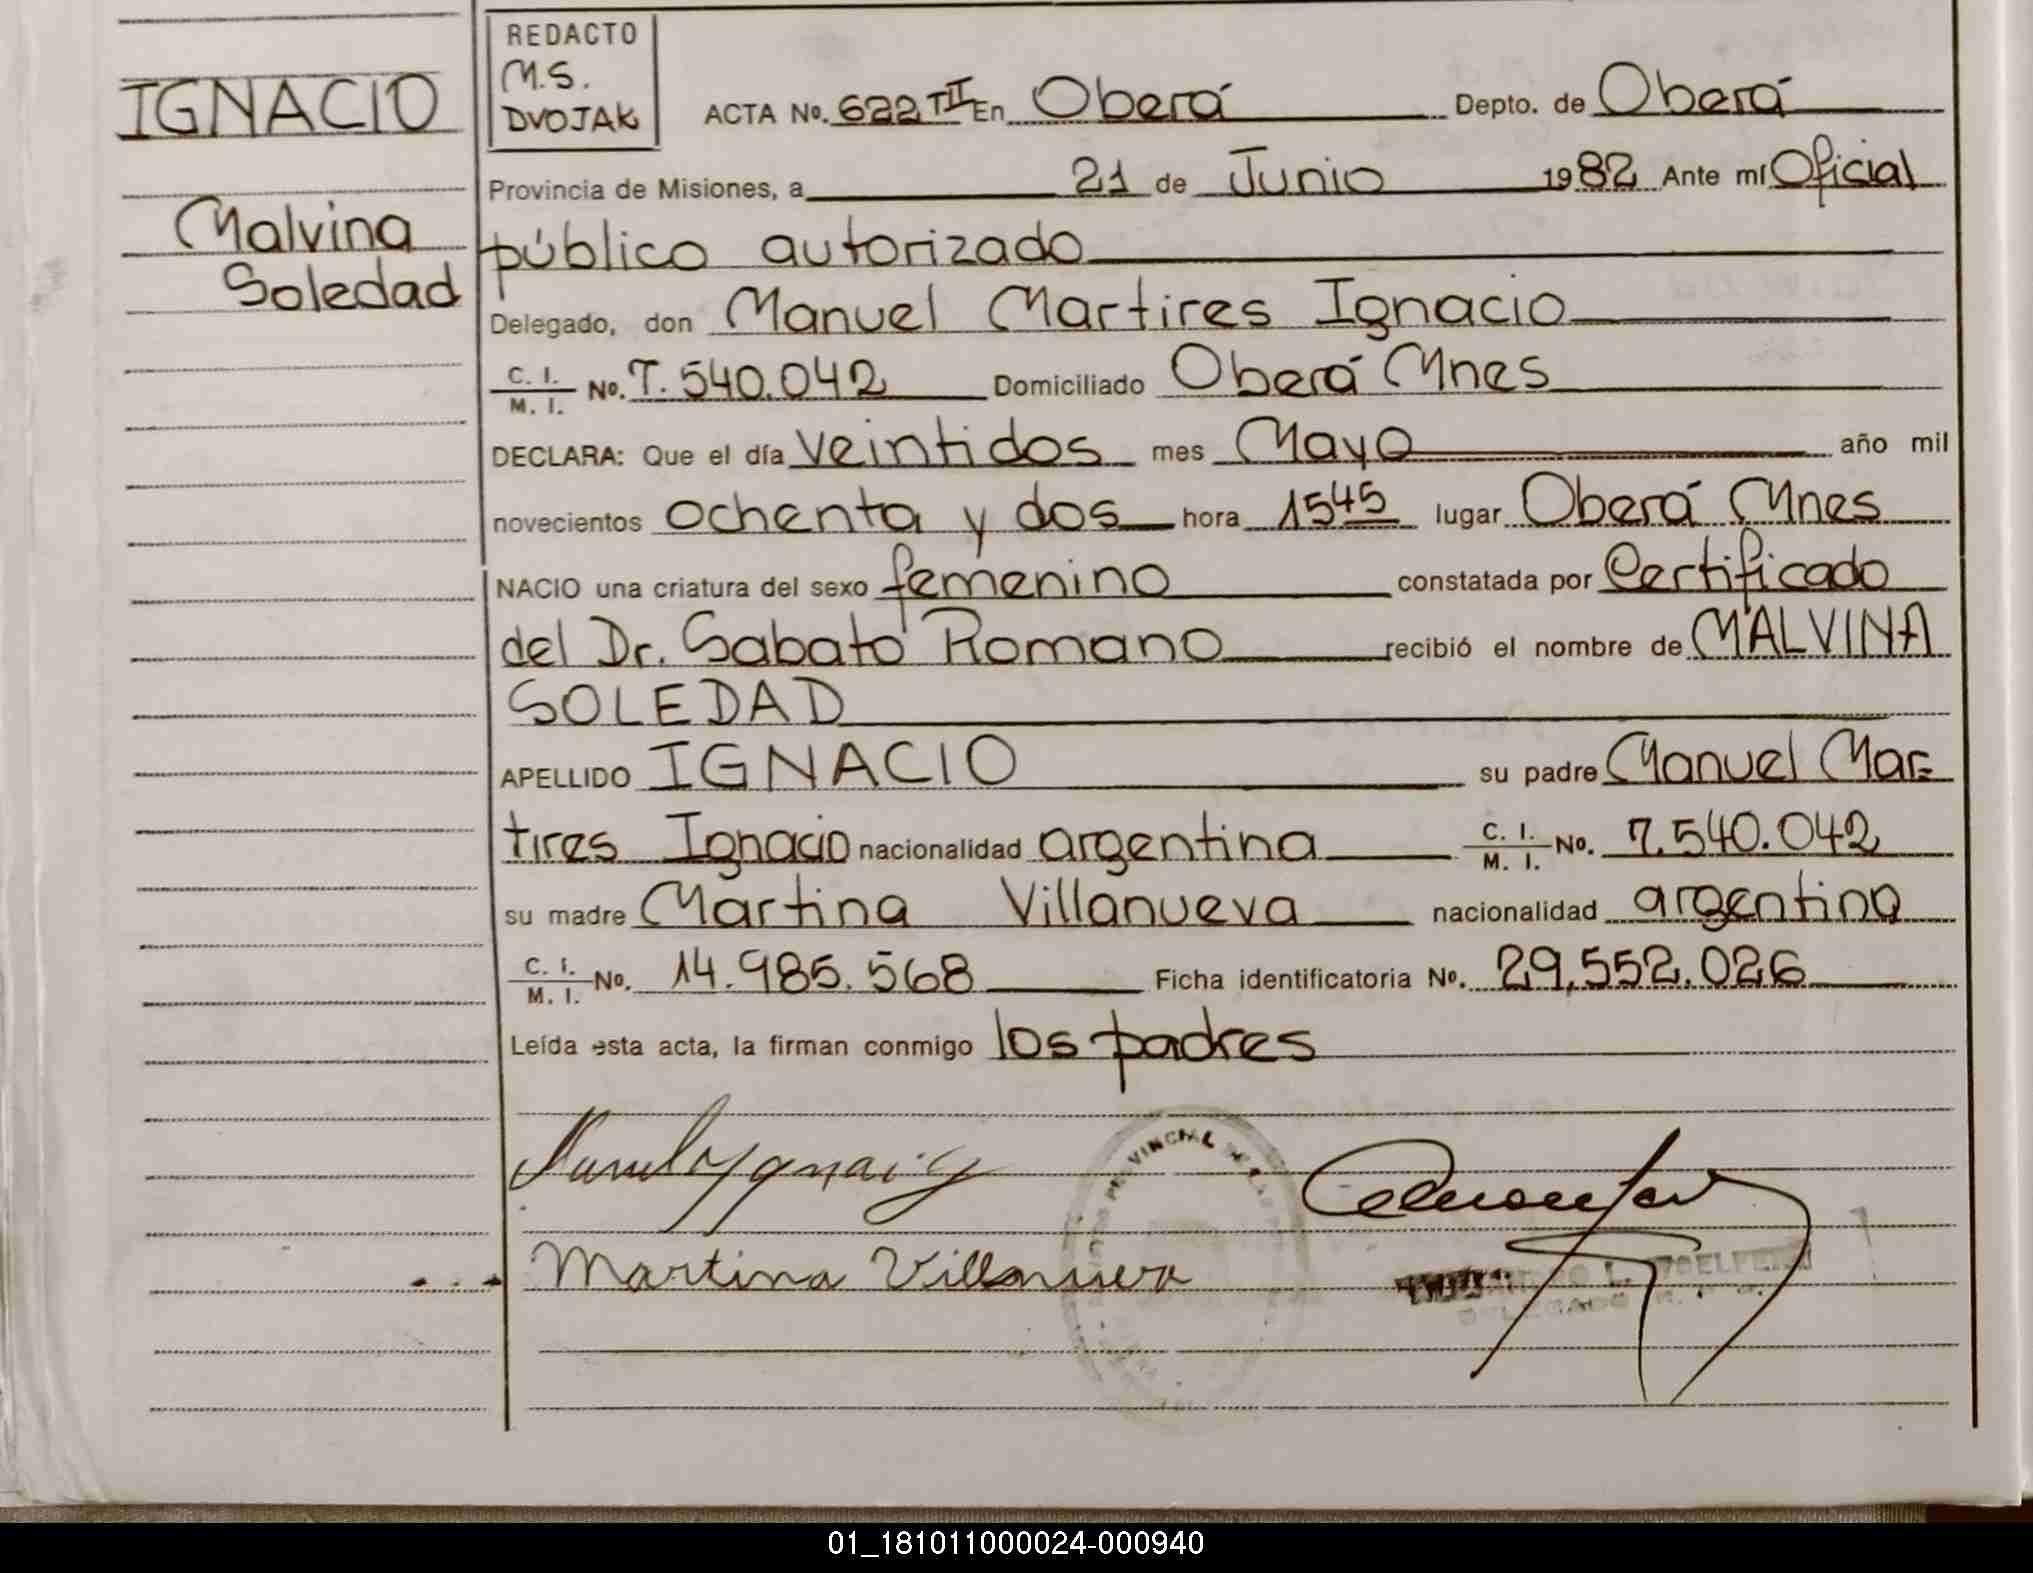 IGNACIO
Malvina
Soledad
REDACTO
M.S.
DVOJAK
ACTA No. 622 TII En Oberá Depto. de Oberá
Provincia de Misiones, a 21 de Junio 1982 Ante mí Oficial
público autorizado
Delegado, don Manuel Martires Ignacio
C. I. / M. I. No. 7.540.042 Domiciliado Oberá Mnes
DECLARA: Que el día veintidos mes Mayo año mil
novecientos ochenta y dos hora 1545 lugar Oberá Mnes
NACIO una criatura del sexo femenino constatada por Certificado
del Dr. Sabato Romano recibió el nombre de MALVINA
SOLEDAD
APELLIDO IGNACIO su padre Manuel Mar=
tires Ignacio nacionalidad argentina C. I. / M. I. No. 7.540.042
su madre Martina Villanueva nacionalidad argentina
C. I. / M. I. No. 14.985.568 Ficha identificatoria No. 29.552.026
Leída esta acta, la firman conmigo los padres
Martina Villanueva
PROVINCIAL
01_181011000024-000940